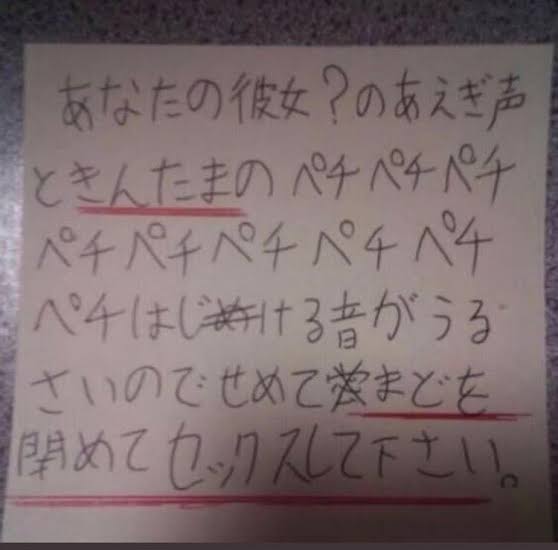 あなたの彼女？のあえぎ声
ときんたまのペチペチペチ
ペチペチペチペチペチ
ペチはじける音がうる
さいのでせめてまどを
閉めてセックスして下さい。